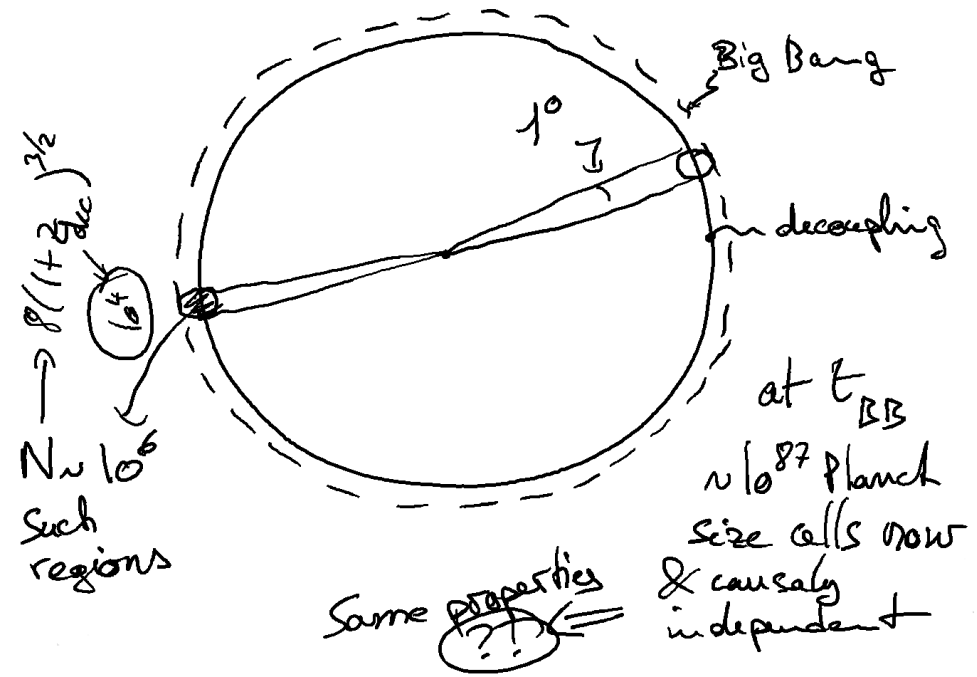 Big Bang
1°
decoupling
→ 8(1+z_dec)^{3/2}
10^4
N~10^6
such
regions
at t_BB
~10^87 Planck
size cells now
& causaly
independent
Same properties
??